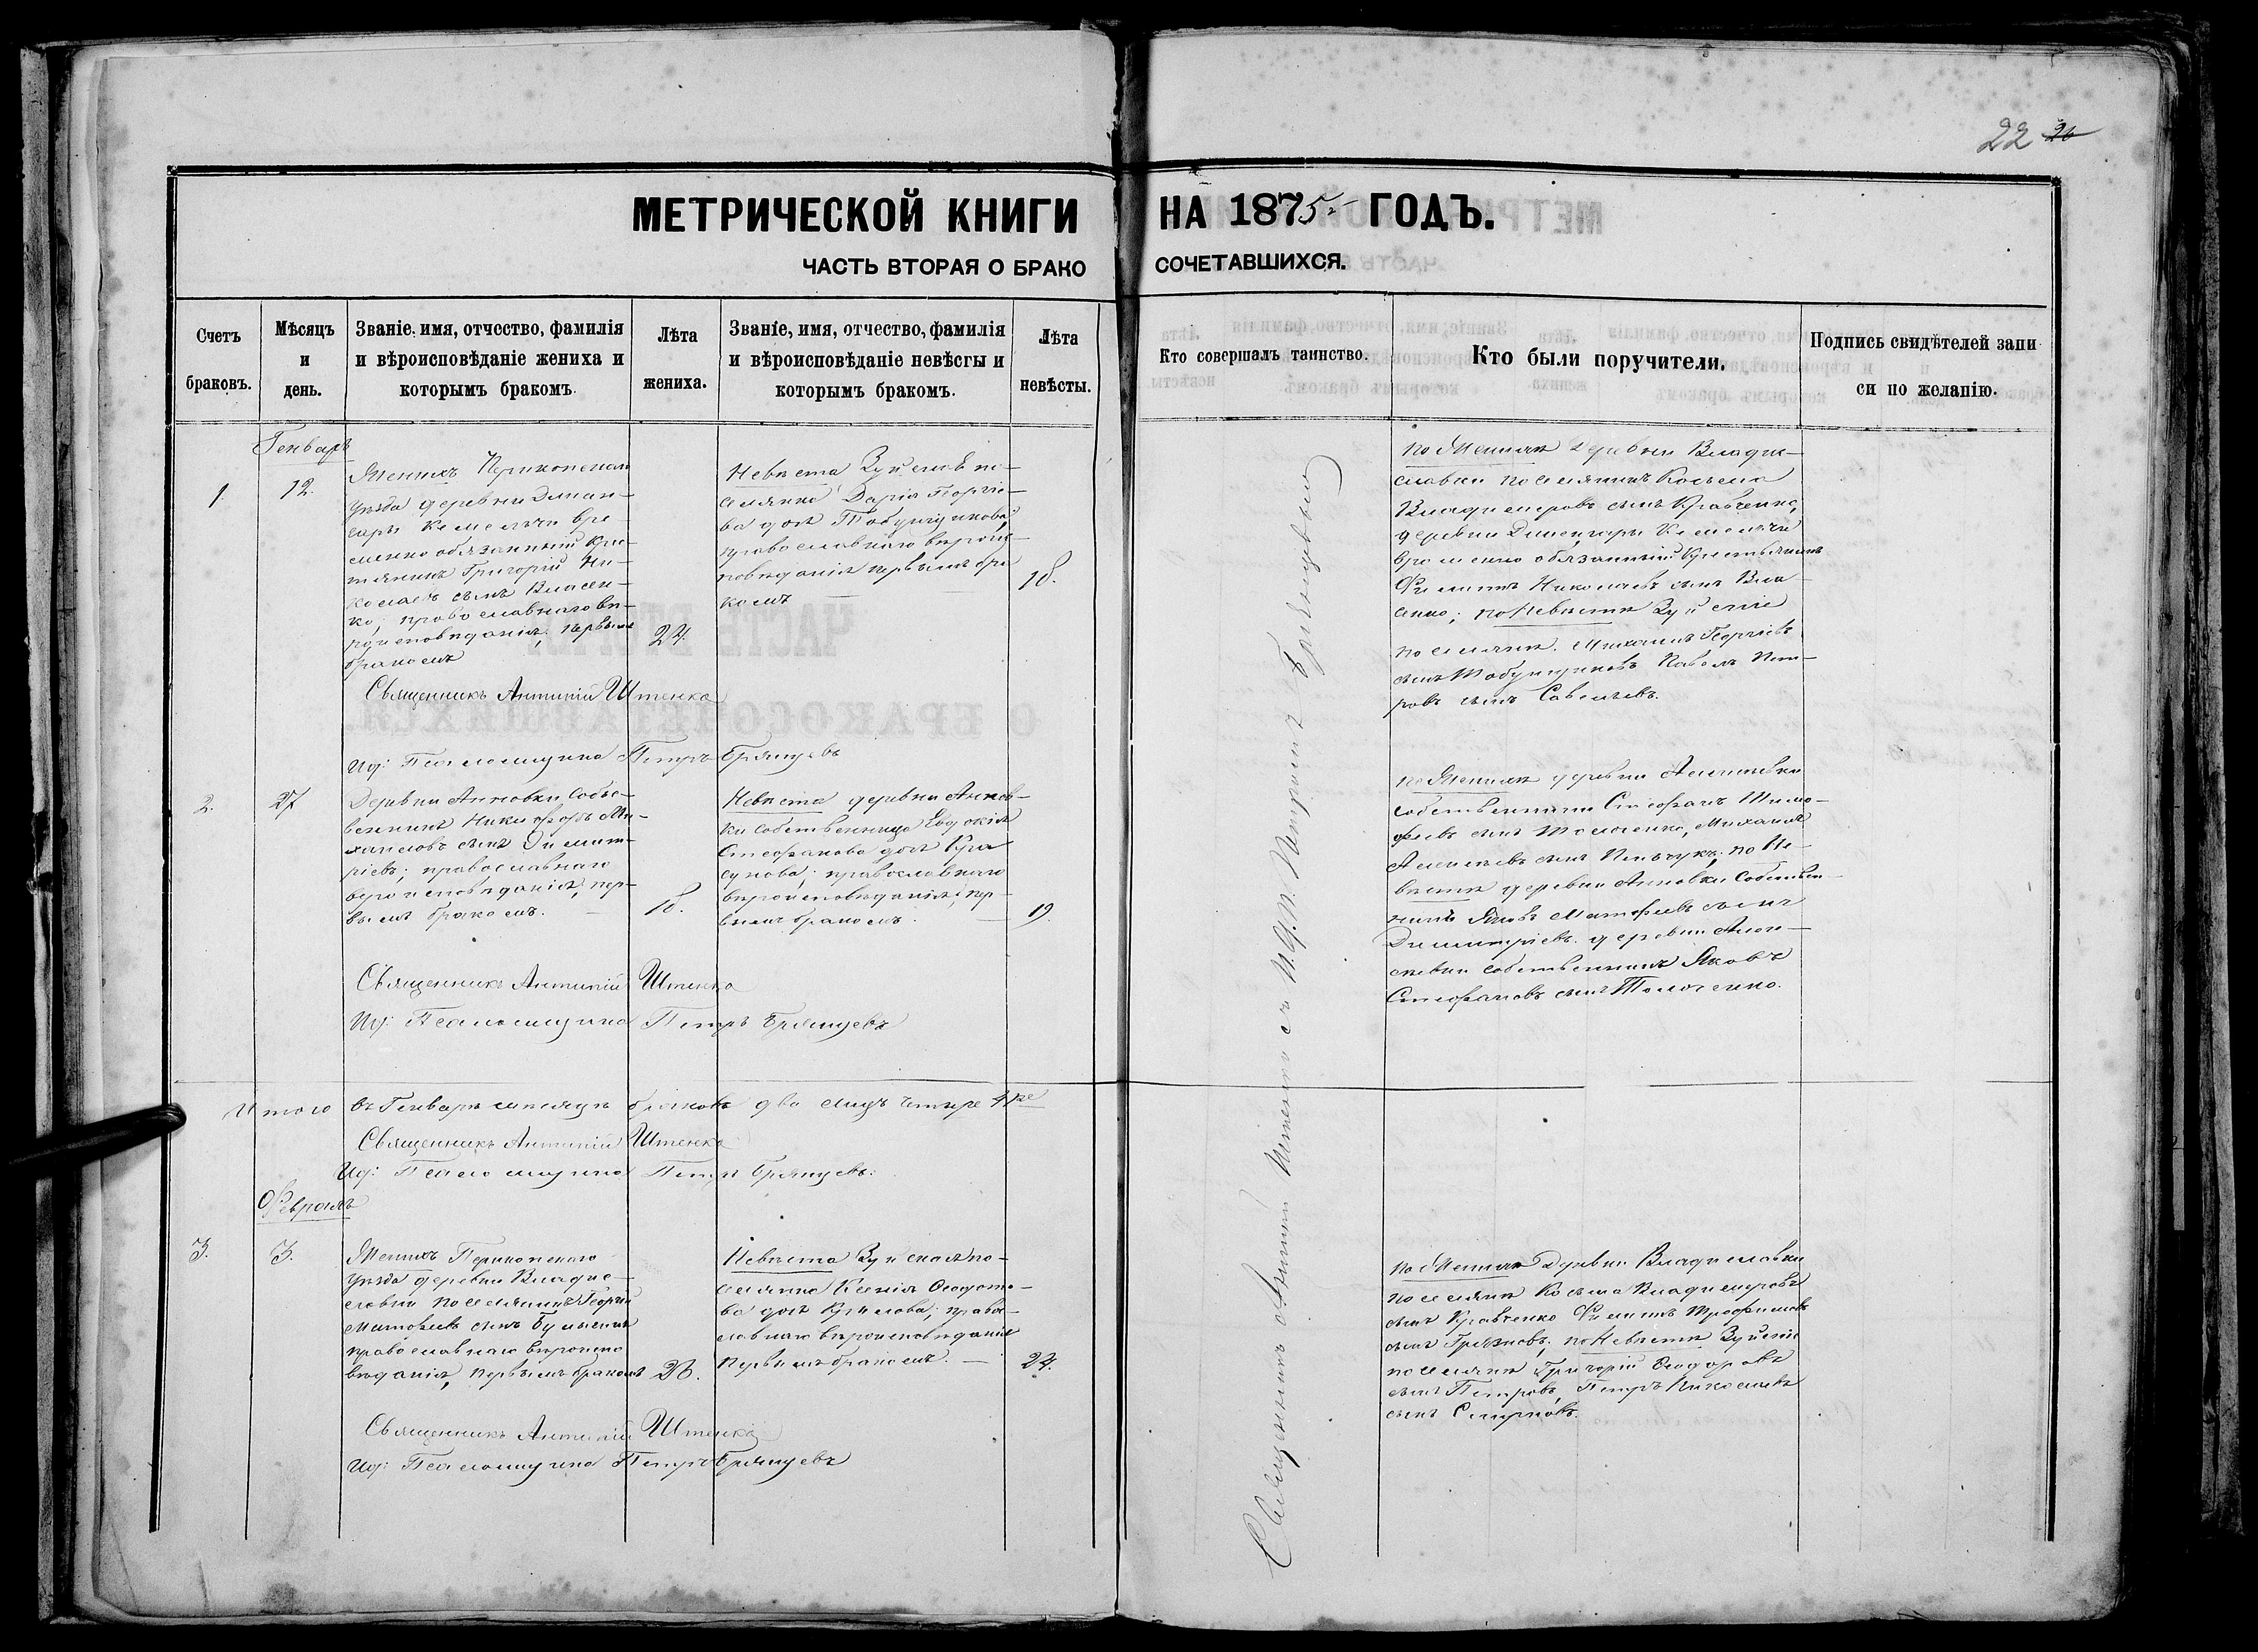 22 26
МЕТРИЧЕСКОЙ КНИГИ НА 1875 ГОДЪ.
ЧАСТЬ ВТОРАЯ О БРАКОСОЧЕТАВШИХСЯ.
Счетъ браковъ.
Мѣсяцъ и день.
Званіе, имя, отчество, фамилія
и вѣроисповѣданіе жениха и
которымъ бракомъ.
Лѣта жениха.
Званіе, имя, отчество, фамилія
и вѣроисповѣданіе невѣсты и
которымъ бракомъ.
Лѣта невѣсты.
Кто совершалъ таинство.
Кто были поручители.
Подпись свидѣтелей запи
си по желанію.
Генварь
1.
12.
Женихъ Перикопскаго
уѣзда деревни
вре-
менно обязанный Кре-
стянинъ Григорій Ни-
колаевъ сынъ Власен-
ко; православнаго вѣ-
роисповѣданія, первымъ
бракомъ
24.
Невѣста Зуйская по-
селянка Дарія Георгіе-
ва дочь
православнаго вѣроис-
повѣданія первымъ бра
комъ
18.
по Женихѣ деревни Влади-
славки поселянинъ Косьма
Владимеровъ сынъ Кравченко,
деревни
временно обязанный Крестьянинъ
Филиппъ Николаевъ сынъ Вла-
сенко; по Невѣстѣ Зуйскіе
поселяне Михаилъ Георгіевъ
сынъ Павелъ Пет-
ровъ сынъ Савельевъ.
Священникъ Антипій Штенко
Ид: Псаломщика Петръ Брянцевъ
2.
27
Деревни Анновки Собс-
венникъ Никифоръ Ми-
хаиловъ сынъ Димит-
ріевъ; православнаго
вероисповѣданія, пер-
вымъ бракомъ.
18.
Невѣста деревни Аннов-
ки Собственница Евдокія
Стефанова дочь
православнаго
вѣроисповѣданія, пер-
вымъ бракомъ.
19.
по Женихѣ деревни
собственники Стефанъ Тимо-
феевъ сынъ Толоченко, Михаилъ
Алексѣевъ сынъ по Не-
вѣстѣ деревни Анновки Собствен-
никъ Яковъ Матфеевъ сынъ
Димитріевъ. деревни
собственникъ Яковъ
Стефановъ сынъ Толоченко.
Священникъ Антипій Штенко
Ид: Псаломщика Петръ Брянцевъ
Итого въ Генварѣ мѣсяцѣ браковъ два лицъ четыре 4ре
Священникъ Антипій Штенко
Ид: Псаломщика Петръ Брянцевъ.
Февраль
3.
3.
Женихъ Перикопскаго
уѣзда деревни Влади-
славки поселянинъ Георгій
Матфеевъ сынъ
православнаго вѣроиспо
вѣданія, первымъ бракомъ
26.
Невѣста Зуйская по-
селянка Ксенія Феодото-
ва дочь Крылова; право-
славнаго вѣроисповѣданія
первымъ бракомъ.
24.
по Женихѣ Деревни Владиславки
поселяне Косьма Владимеровъ
сынъ Кравченко Филиппъ Трофимовъ
сынъ Грязновъ; по Невѣстѣ Зуйскіе
поселяне Григорій Феодоровъ
сынъ Петровъ, Петръ Николаевъ
сынъ Смирновъ.
Священникъ Антипій Штенко
Ид: Псаломщика Петръ Брянцевъ
Священникъ Антипій Штенко съ И.д.п. Петромъ Брянцевымъ